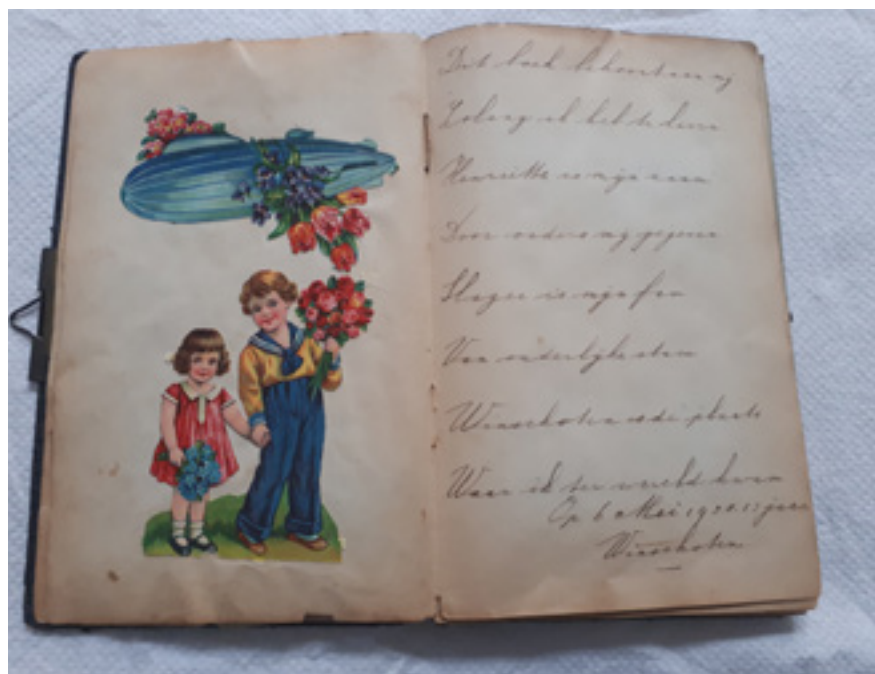 Dit boek behoort aan mij
Zolang ik heb te leven
Henriette is mijn naam
Door ouders mij gegeven
Slager is mijn fam
Van ouderlijke stam
Winschoten is de plaats
Waar ik ter wereld kwam
Op 6 Mei 19 jaar
Winschoten